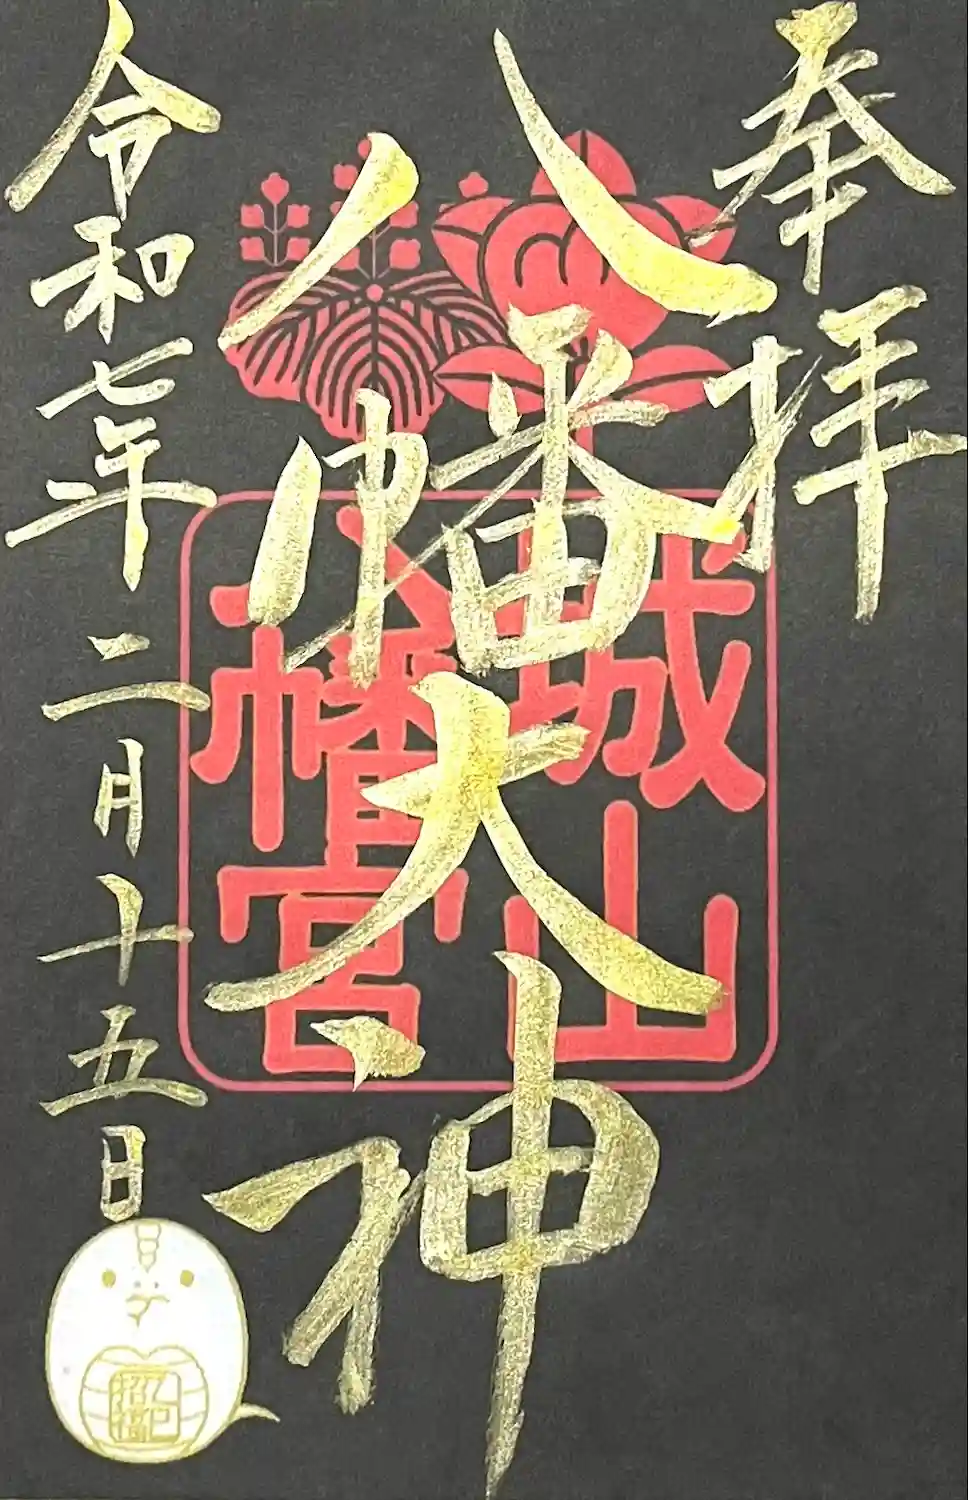 奉拝
八幡大神
城山
八幡宮
令和七年二月十五日
乙巳
招福